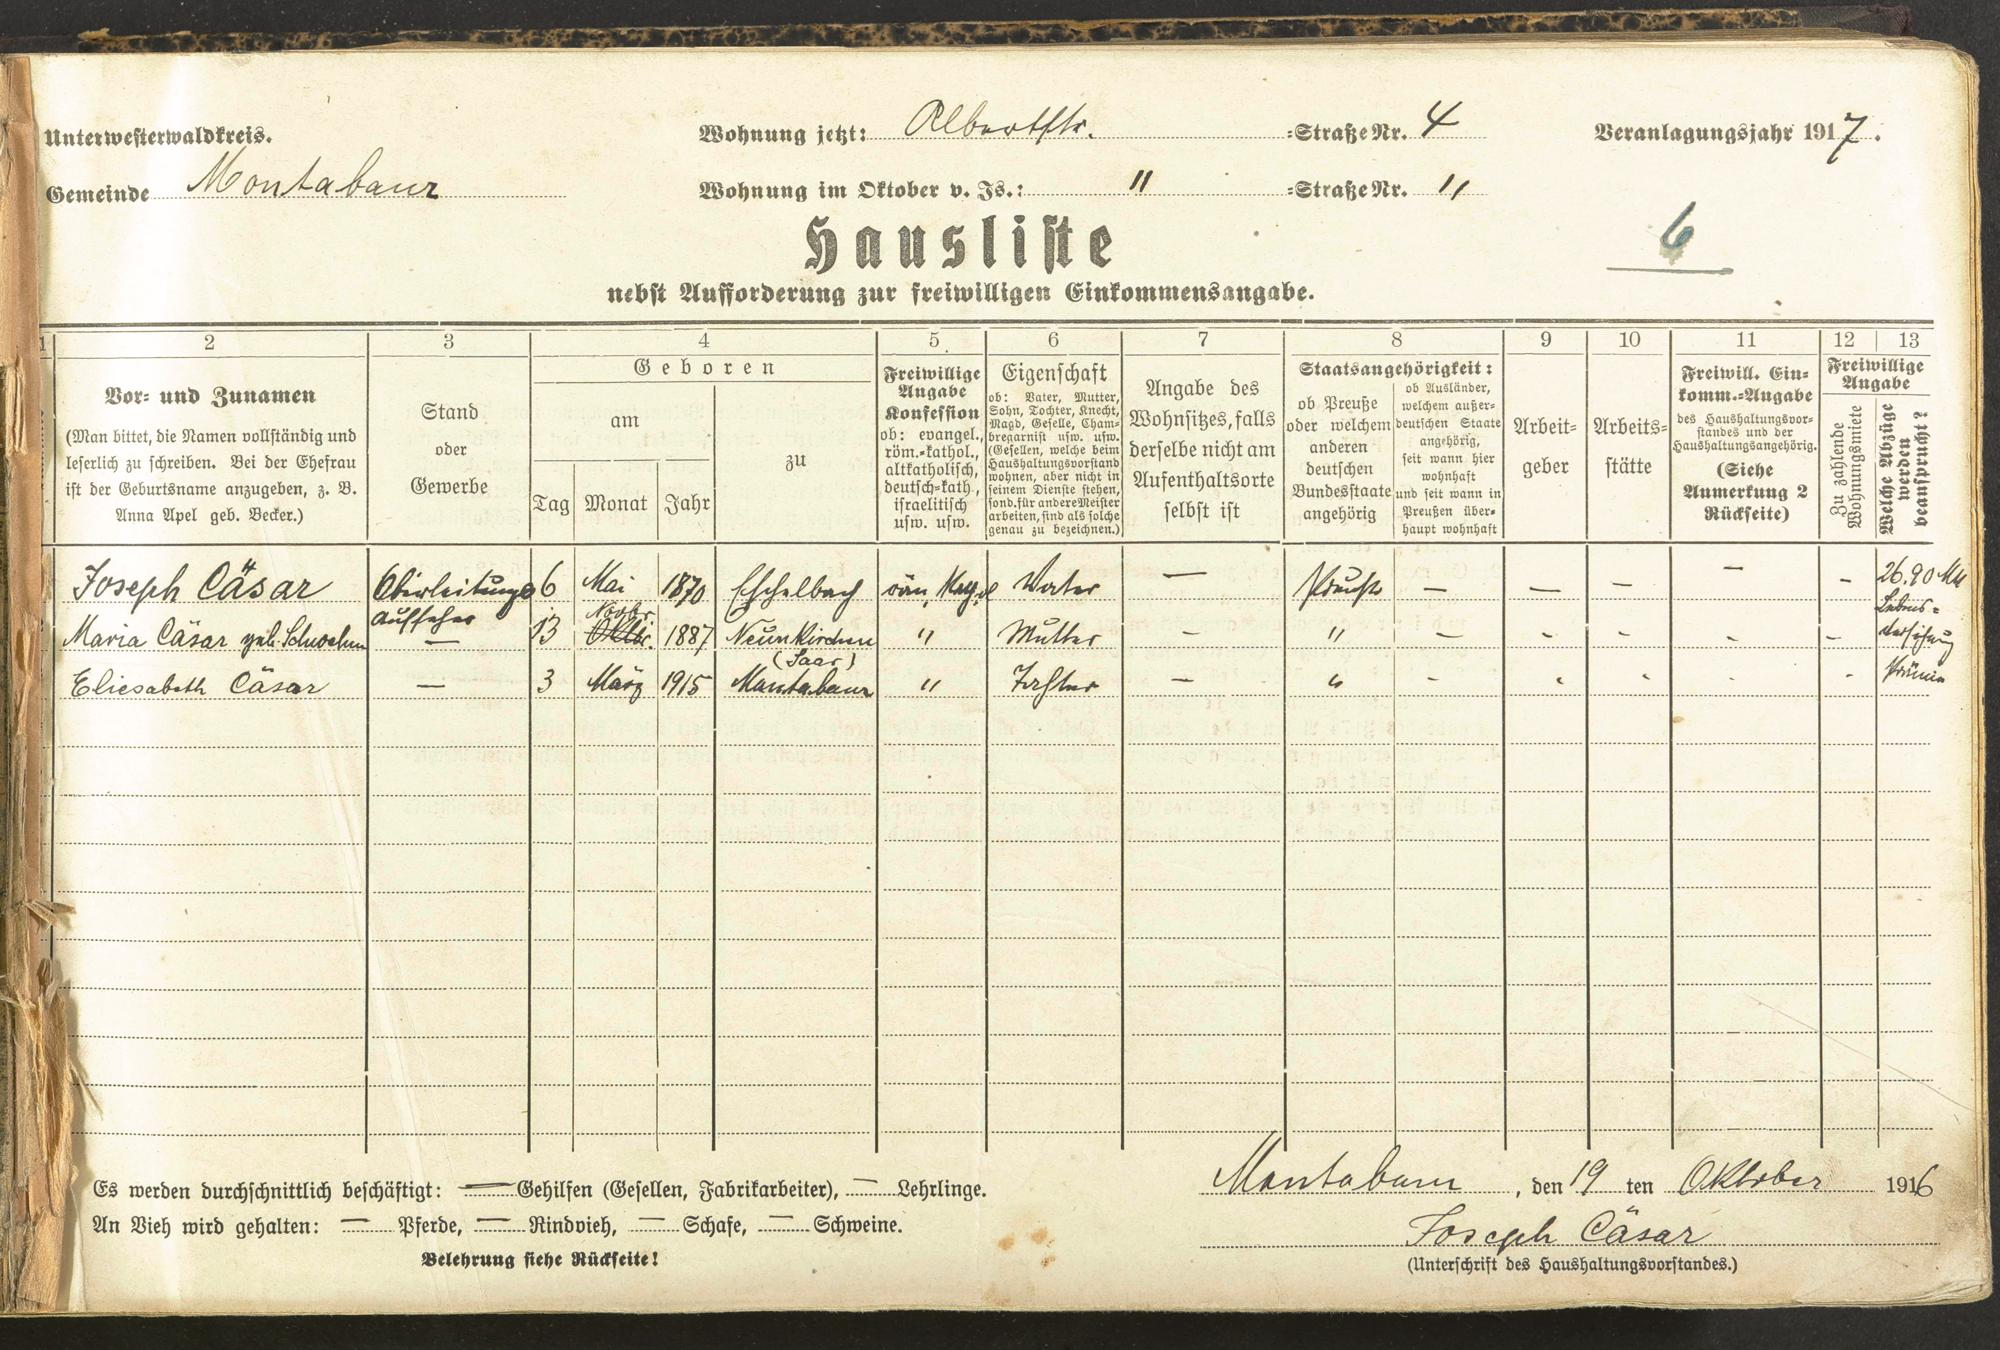 Unterwesterwaldkreis.
Gemeinde Montabaur
Wohnung jetzt: Albertstr. =Straße Nr. 4
Wohnung im Oktober v. Js.: " =Straße Nr. "
Veranlagungsjahr 1917.
6
Hausliste
nebst Aufforderung zur freiwilligen Einkommensangabe.
1 2 3 4 5 6 7 8 9 10 11 12 13
Vor- und Zunamen
(Man bittet, die Namen vollständig und
leserlich zu schreiben. Bei der Ehefrau
ist der Geburtsname anzugeben, z. B.
Anna Apel geb. Becker.)
Stand
oder
Gewerbe
Geboren
am
Tag Monat Jahr
zu
Freiwillige
Angabe
Konfession
ob: evangel.,
röm.-kathol.,
altkatholisch,
deutsch-kath.,
israelitisch
usw. usw.
Eigenschaft
ob: Vater, Mutter,
Sohn, Tochter, Knecht,
Magd, Geselle, Cham-
bregarnist usw. usw.
(Gesellen, welche beim
Haushaltungsvorstand
wohnen, aber nicht in
seinem Dienste stehen,
sond. für andere Meister
arbeiten, sind als solche
genau zu bezeichnen.)
Angabe des
Wohnsitzes, falls
derselbe nicht am
Aufenthaltsorte
selbst ist
Staatsangehörigkeit:
ob Preuße
oder welchem
anderen
deutschen
Bundesstaate
angehörig
ob Ausländer,
welchem außer-
deutschen Staate
angehörig,
seit wann hier
wohnhaft
und seit wann in
Preußen über-
haupt wohnhaft
Arbeit-
geber
Arbeits-
stätte
Freiwill. Ein-
komm.-Angabe
des Haushaltungsvor-
standes und der
Haushaltungsangehörig.
(Siehe
Anmerkung 2
Rückseite)
Freiwillige
Angabe
Zu zahlende
Wohnungsmiete
Welche Abzüge
werden
beansprucht?
Joseph Cäsar Oberleitungs 6 Mai 1870 Eschelbach röm. Kath. Vater — Preuße — — — — - 26.90 Mk
aufseher Novbr. Lebens=
Maria Cäsar geb. Schwehm — 13 Oktbr. 1887 Neunkirchen " Mutter — " — - - - - versicherung
(Saar)
Eliesabeth Cäsar — 3 März 1915 Montabaur " Tochter — " - - - - - Prämie
Es werden durchschnittlich beschäftigt: — Gehilfen (Gesellen, Fabrikarbeiter), — Lehrlinge.
An Vieh wird gehalten: — Pferde, — Rindvieh, — Schafe, — Schweine.
Belehrung siehe Rückseite!
Montabaur, den 19 ten Oktober 1916
Joseph Cäsar
(Unterschrift des Haushaltungsvorstandes.)